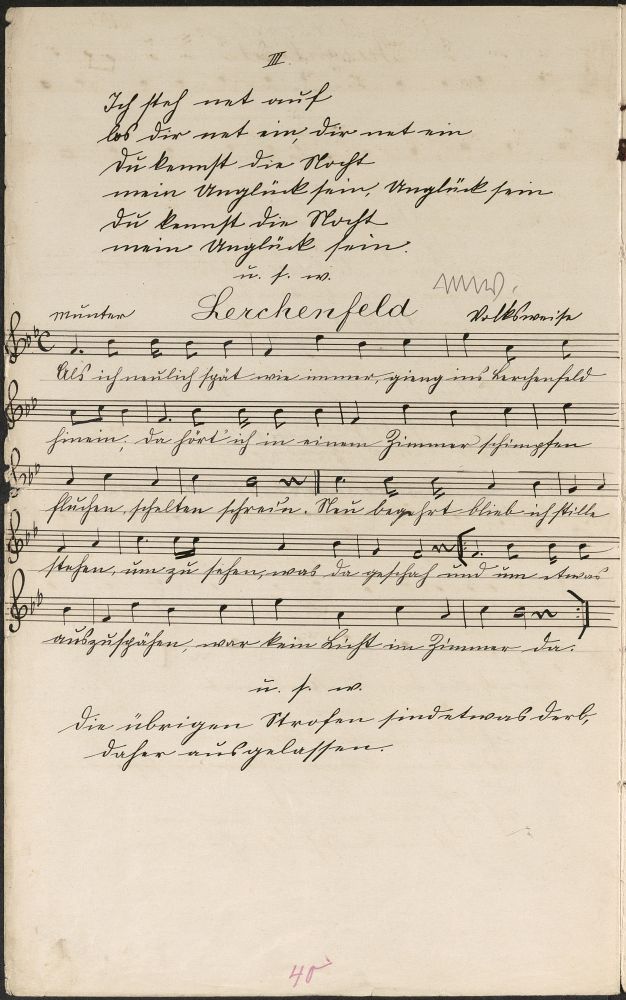 III.
Ich steh net auf
los dir net ein, dir net ein
Du kennst die Nocht
mein Unglück sein, Unglück sein
Du kennst die Nocht
mein Unglück sein.
u. s. w.
munter Lerchenfeld Volksweise
Als ich neulich spät wie immer, gieng ins Lerchenfeld
hinein, da hört' ich in einem Zimmer schimpfen
fluchen, schelten schrein. Neu begehrt blieb ich stille
stehen, um zu sehen, was da geschah und um etwas
auszuspähen, war kein Licht im Zimmer da.
u. s. w.
Die übrigen Strofen sind etwas derb,
daher ausgelassen.
40